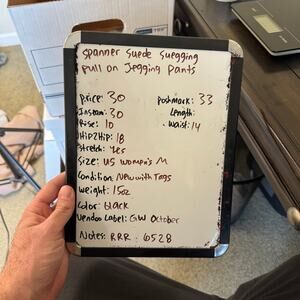 Spanner Suede Suegging
Pull on Jegging Pants
Price: 30
Poshmark: 33
Inseam: 30
Length:
Rise: 10
Waist: 14
Hip2Hip: 18
Stretch: Yes
Size: US Women's M
Condition: New with Tags
Weight: 15oz
Color: Black
Vendoo Label: GW October
Notes: RRR - 6528